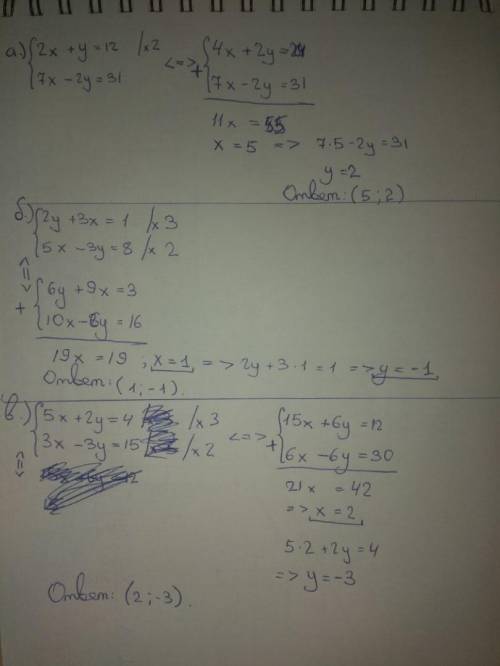 а.) {2x + y = 12 /x2
{7x - 2y = 31
<=> + {4x + 2y = 24
{7x - 2y = 31
11x = 55
x = 5 => 7·5 - 2y = 31
y = 2
Ответ: (5; 2)
б.) {2y + 3x = 1 /x3
{5x - 3y = 8 /x2
<=>
+ {6y + 9x = 3
{10x - 6y = 16
19x = 19 ; x = 1 => 2y + 3·1 = 1 => y = -1
Ответ: (1; -1).
в.) {5x + 2y = 4 /x3
{3x - 3y = 15 /x2
<=> + {15x + 6y = 12
{6x - 6y = 30
21x = 42
=> x = 2
5·2 + 2y = 4
=> y = -3
Ответ: (2; -3).